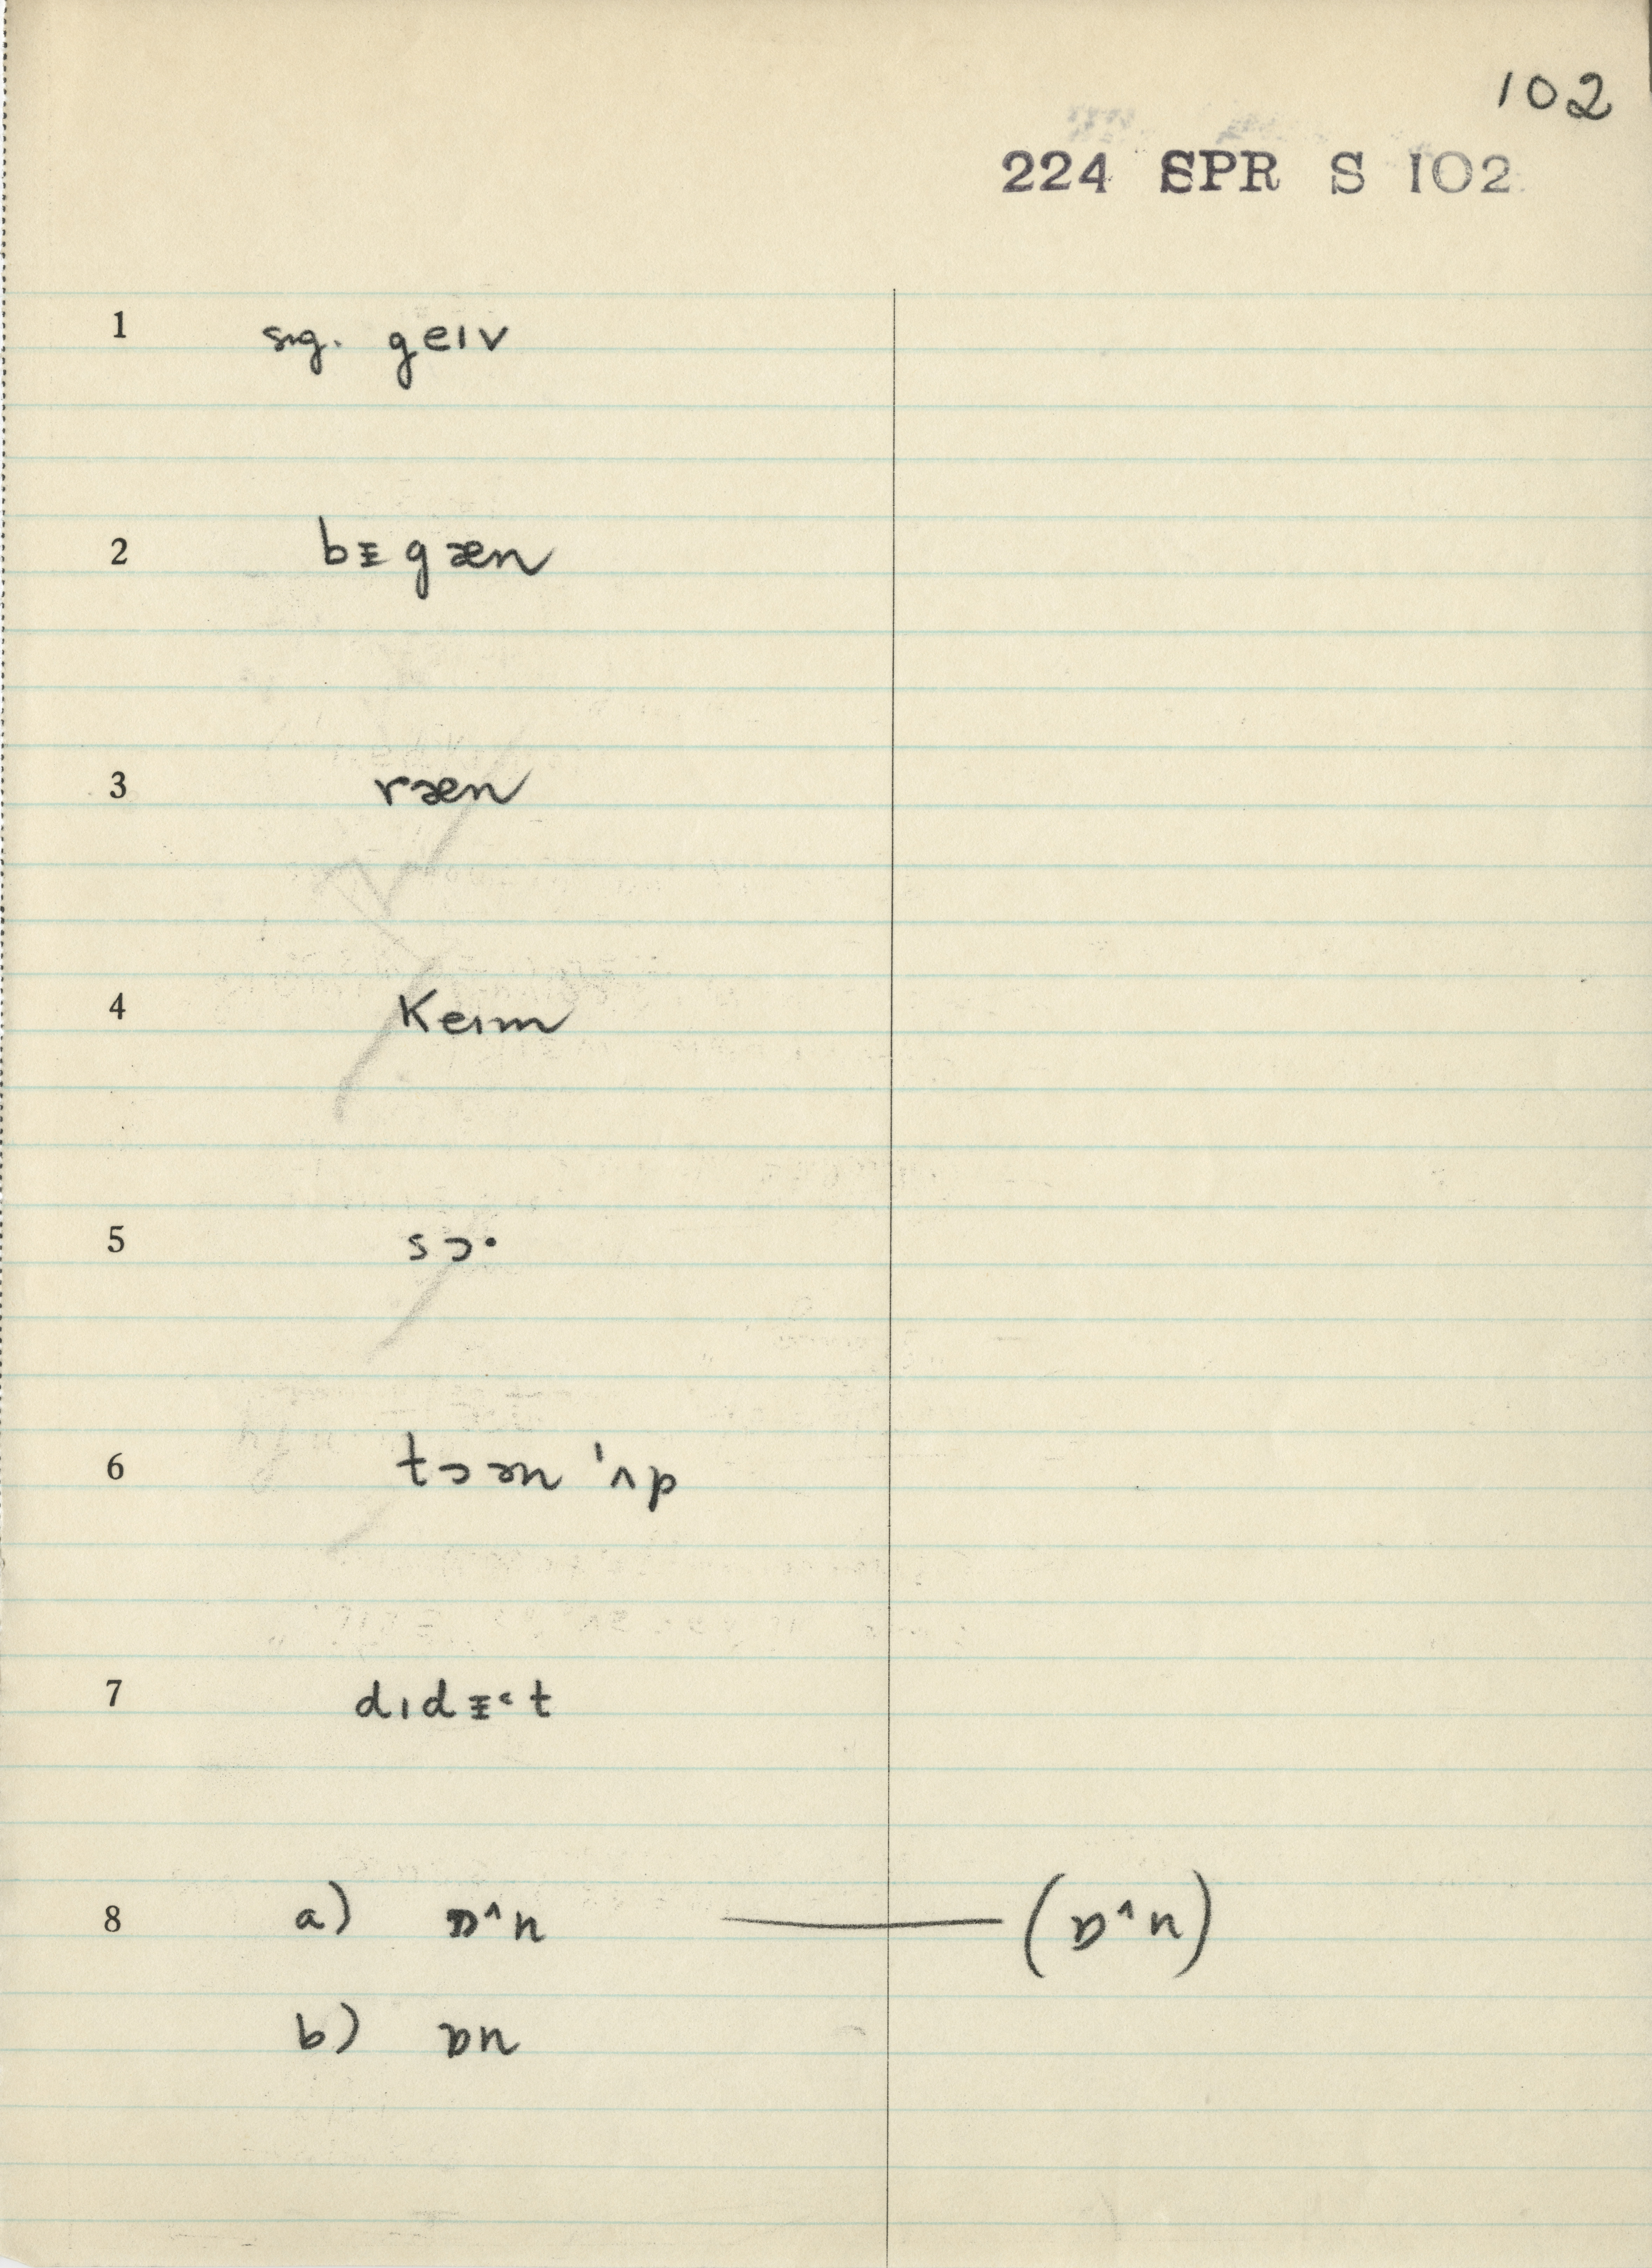 102
224 SPR S 102
1 sug. geɪv
2 bᵻgæn
3 ræn
4 Keɪm
5 sɔ·
6 tɔɚn 'ʌp
7 dɪdᵻ˂t
8 a) ɒ^n — (ɒ^n)
b) ɒn